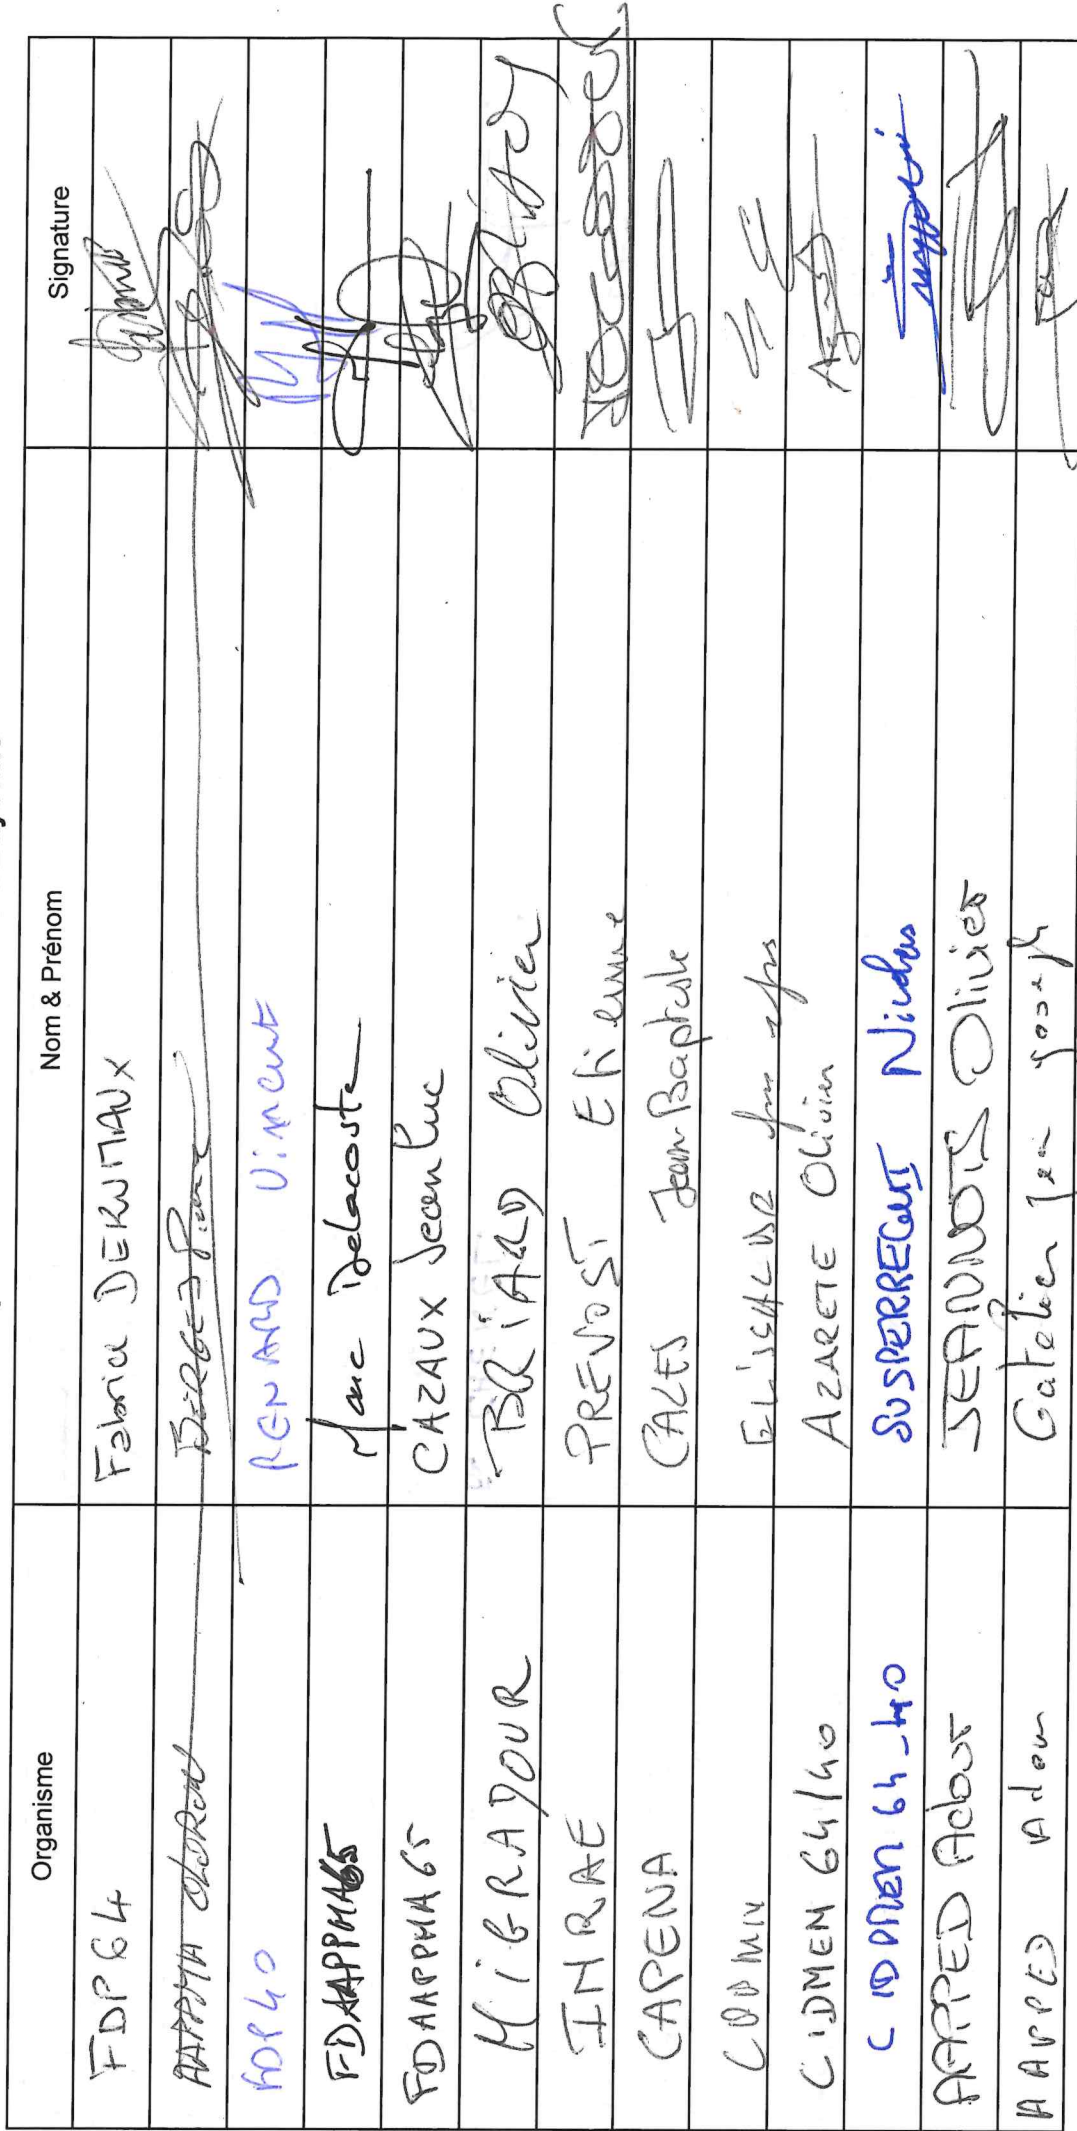 Organisme Nom & Prénom Signature
FDP64 Fabrice DERMAUX
AAPPMA OLORON BERGES Pierre
FDP40 RENARD Vincent
FDAAPPMA65 Marc Delacoste
FDAAPPMA 65 CAZAUX Jean Luc
MiGRADOUR BRiARD Olivier
INRAE PREVOST Etienne
CAPENA CALES Jean-Baptiste
ELISSALDE
CIDMEM 64/40 AZARETE Olivier
CIDPMEM 64-40 SUSPERREGUI Nicolas
AAPPED Adour JEANNOTS Olivier
AAPPED Adour Gatelier Jean Joseph